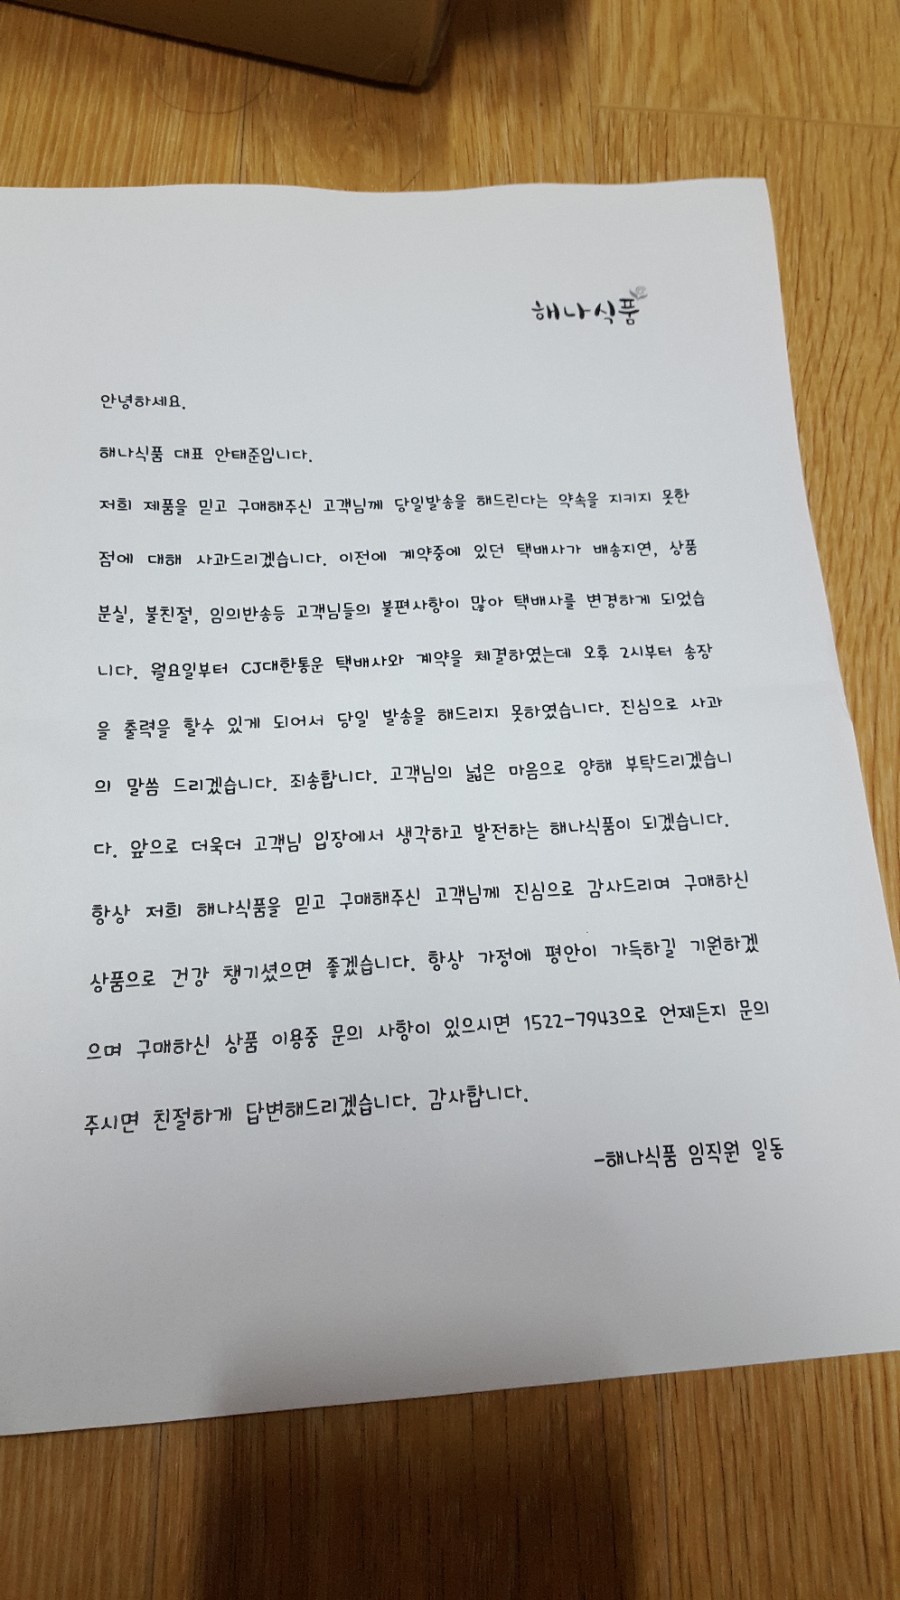 해나식품
안녕하세요.
해나식품 대표 안태준입니다.
저희 제품을 믿고 구매해주신 고객님께 당일발송을 해드린다는 약속을 지키지 못한
점에 대해 사과드리겠습니다. 이전에 계약중에 있던 택배사가 배송지연, 상품
분실, 불친절, 임의반송등 고객님들의 불편사항이 많아 택배사를 변경하게 되었습
니다. 월요일부터 CJ대한통운 택배사와 계약을 체결하였는데 오후 2시부터 송장
을 출력을 할수 있게 되어서 당일 발송을 해드리지 못하였습니다. 진심으로 사과
의 말씀 드리겠습니다. 죄송합니다. 고객님의 넓은 마음으로 양해 부탁드리겠습니
다. 앞으로 더욱더 고객님 입장에서 생각하고 발전하는 해나식품이 되겠습니다.
항상 저희 해나식품을 믿고 구매해주신 고객님께 진심으로 감사드리며 구매하신
상품으로 건강 챙기셨으면 좋겠습니다. 항상 가정에 평안이 가득하길 기원하겠
으며 구매하신 상품 이용중 문의 사항이 있으시면 1522-7943으로 언제든지 문의
주시면 친절하게 답변해드리겠습니다. 감사합니다.
-해나식품 임직원 일동